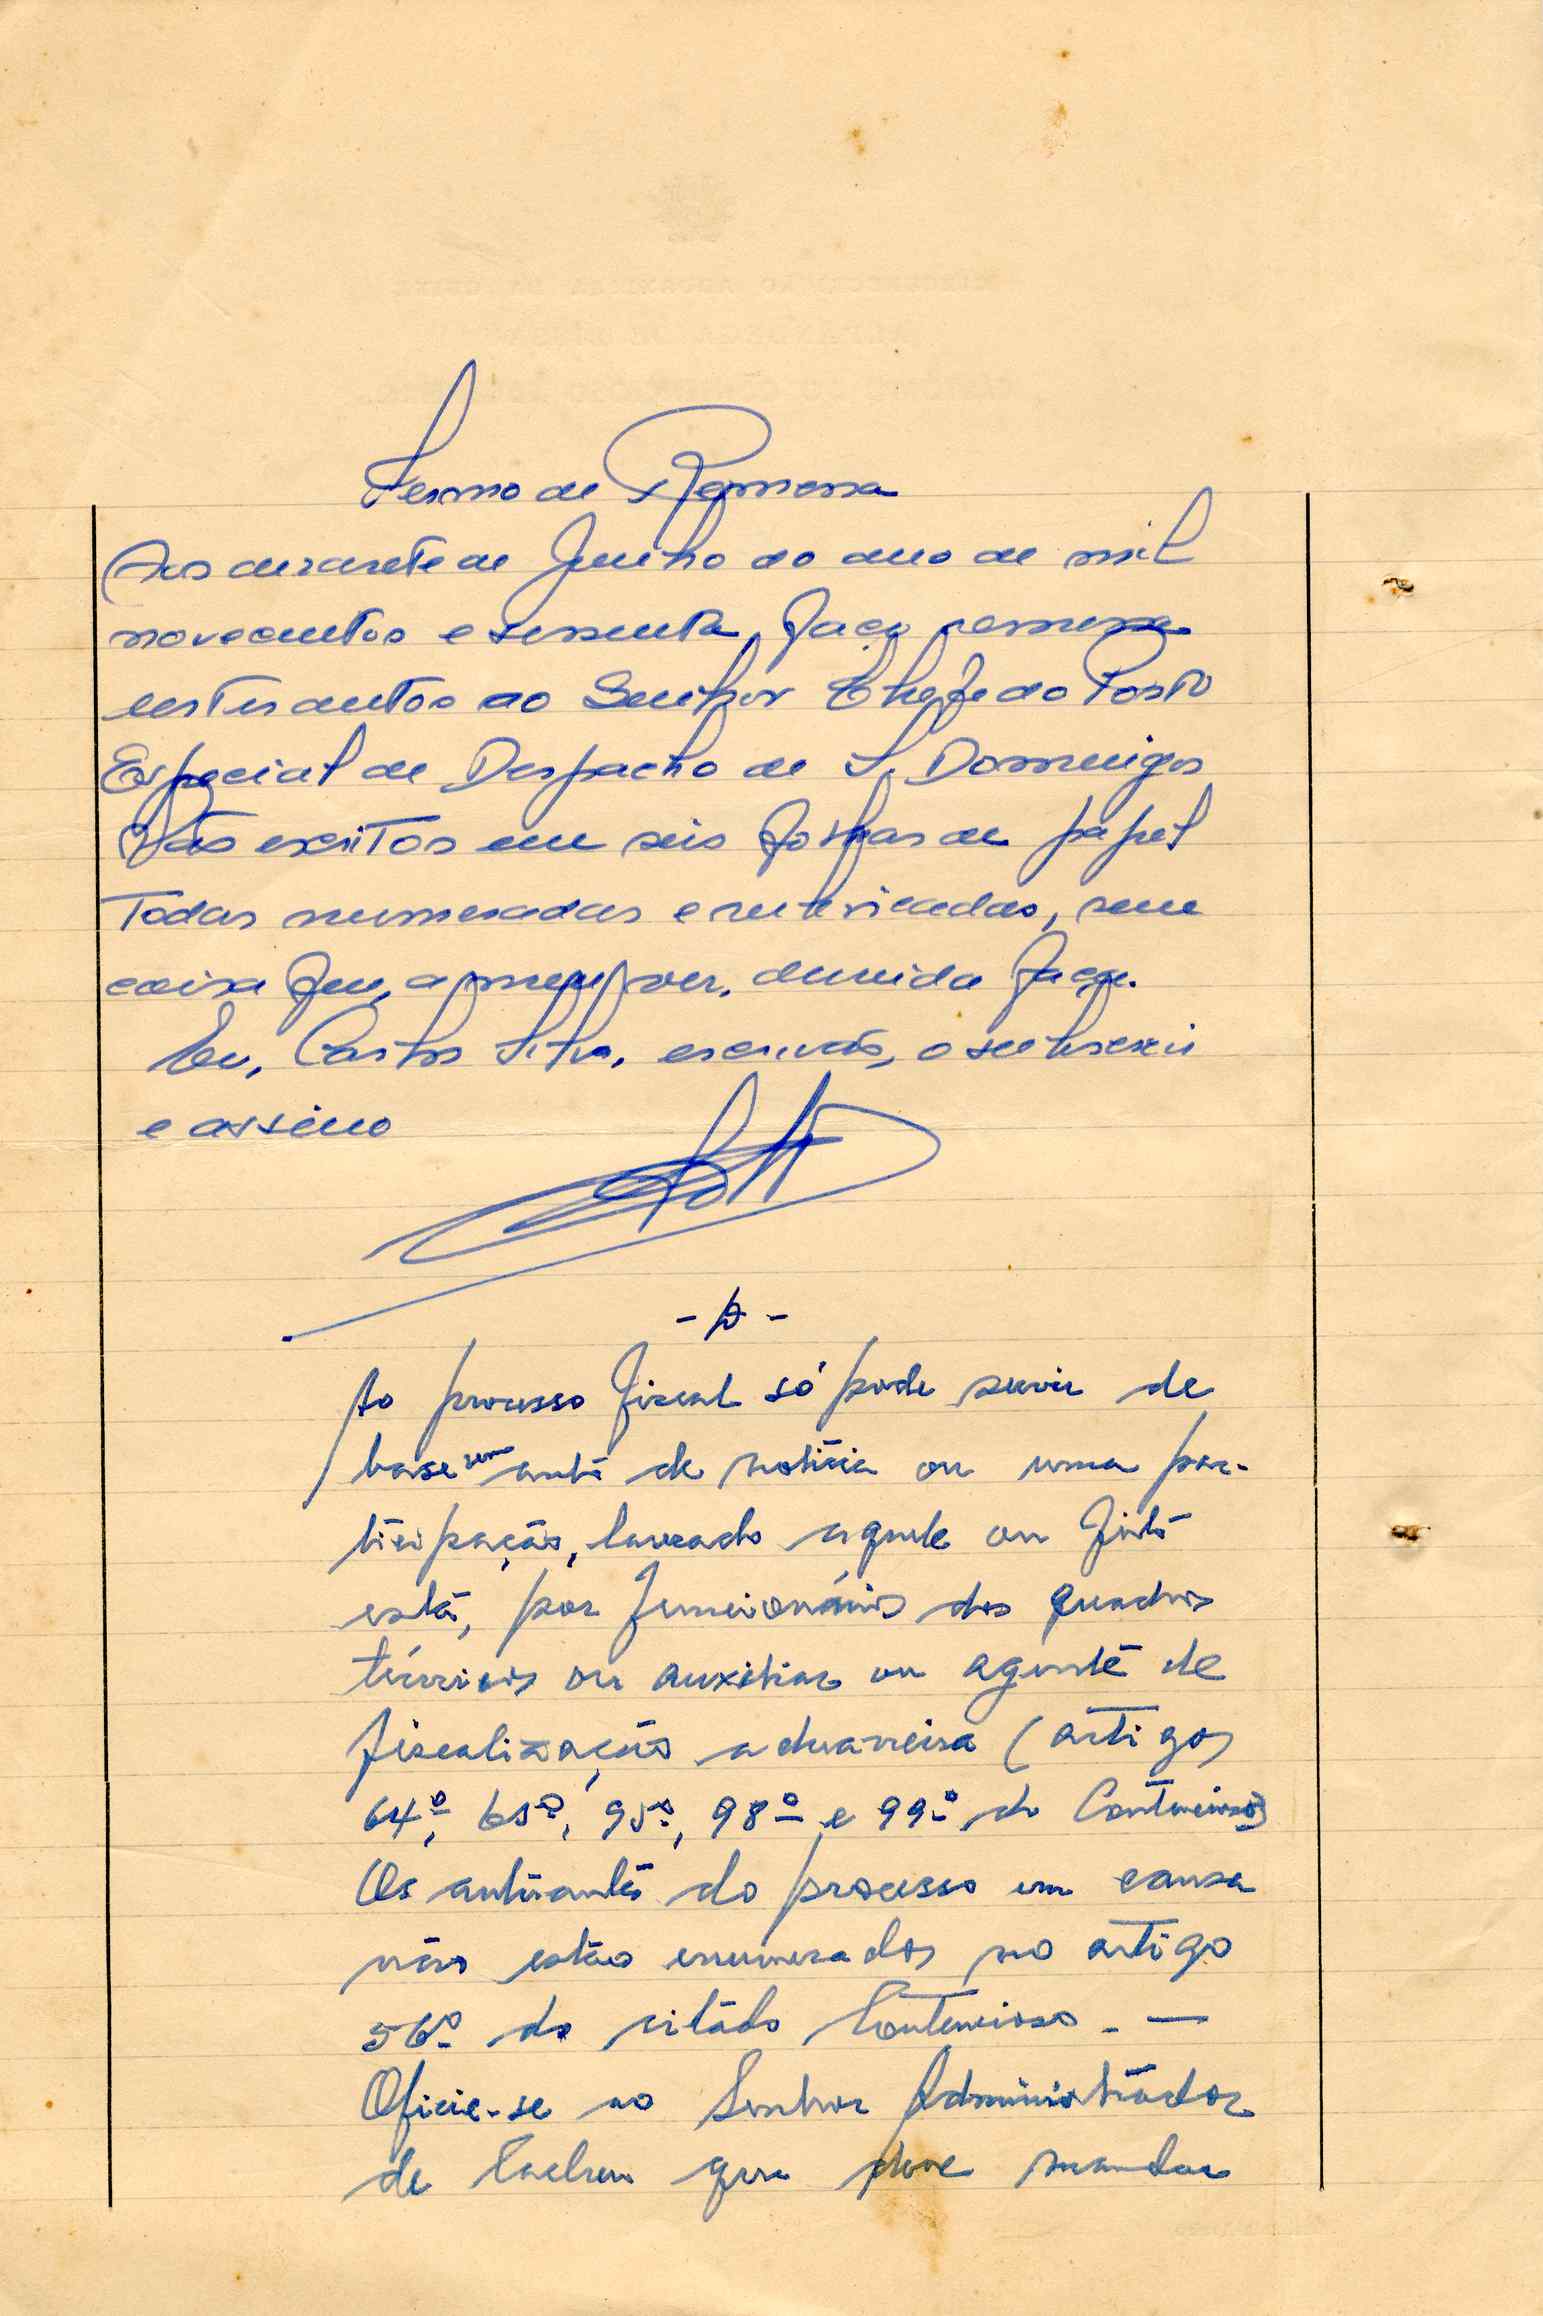 Termo de Remessa
Aos dezasete de Junho do ano de mil
novecentos e sessenta, faço remessa
destes autos ao Senhor Chefe do Posto
Especial de Despacho de S. Domingos
Vão escritos em seis folhas de papel
todas numeradas e rubricadas, sem
coisa que, a meu ver, duvida faça.
Eu, Carlos Silva, escrivão, o subscrevi
e assino
Ao processo fiscal só pode servir de
base um auto de notícia ou uma par-
ticipação, lavrado aquele ou feita
esta, por funcionários dos quadros
técnicos ou auxiliar ou agente de
fiscalização aduaneira (artigos
64º, 65º, 95º, 98º e 99º do Contencioso)
Os autuantes do processo em causa
não estão enumerados no artigo
56º do citado Contencioso. —
Oficie-se ao Senhor Administrador
de Cacheu que deve mandar